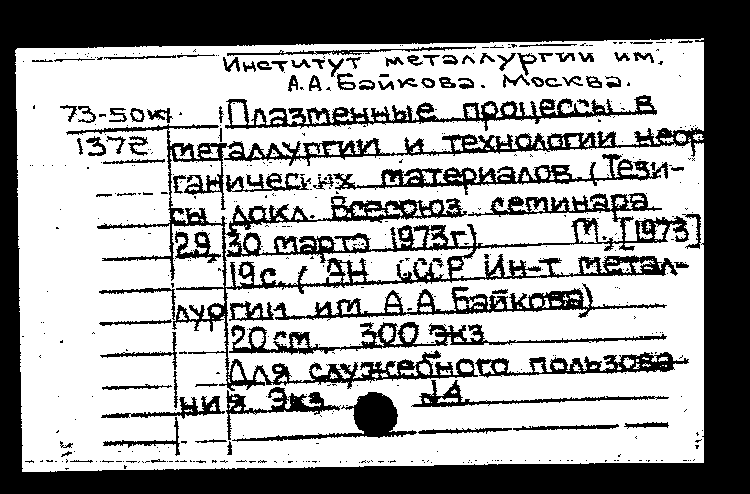 Институт металлургии им.
А.А. Байкова. Москва.
73-50к Плазменные процессы в
1372 металлургии и технологии неор
ганических материалов. (Тези-
сы докл. Всесоюз. семинара
29, 30 марта 1973г.) М., [1973]
19с. (АН СССР Ин-т метал-
лургии им. А.А Байкова)
20 см. 300 экз
Для служебного пользова-
ния Экз N4.